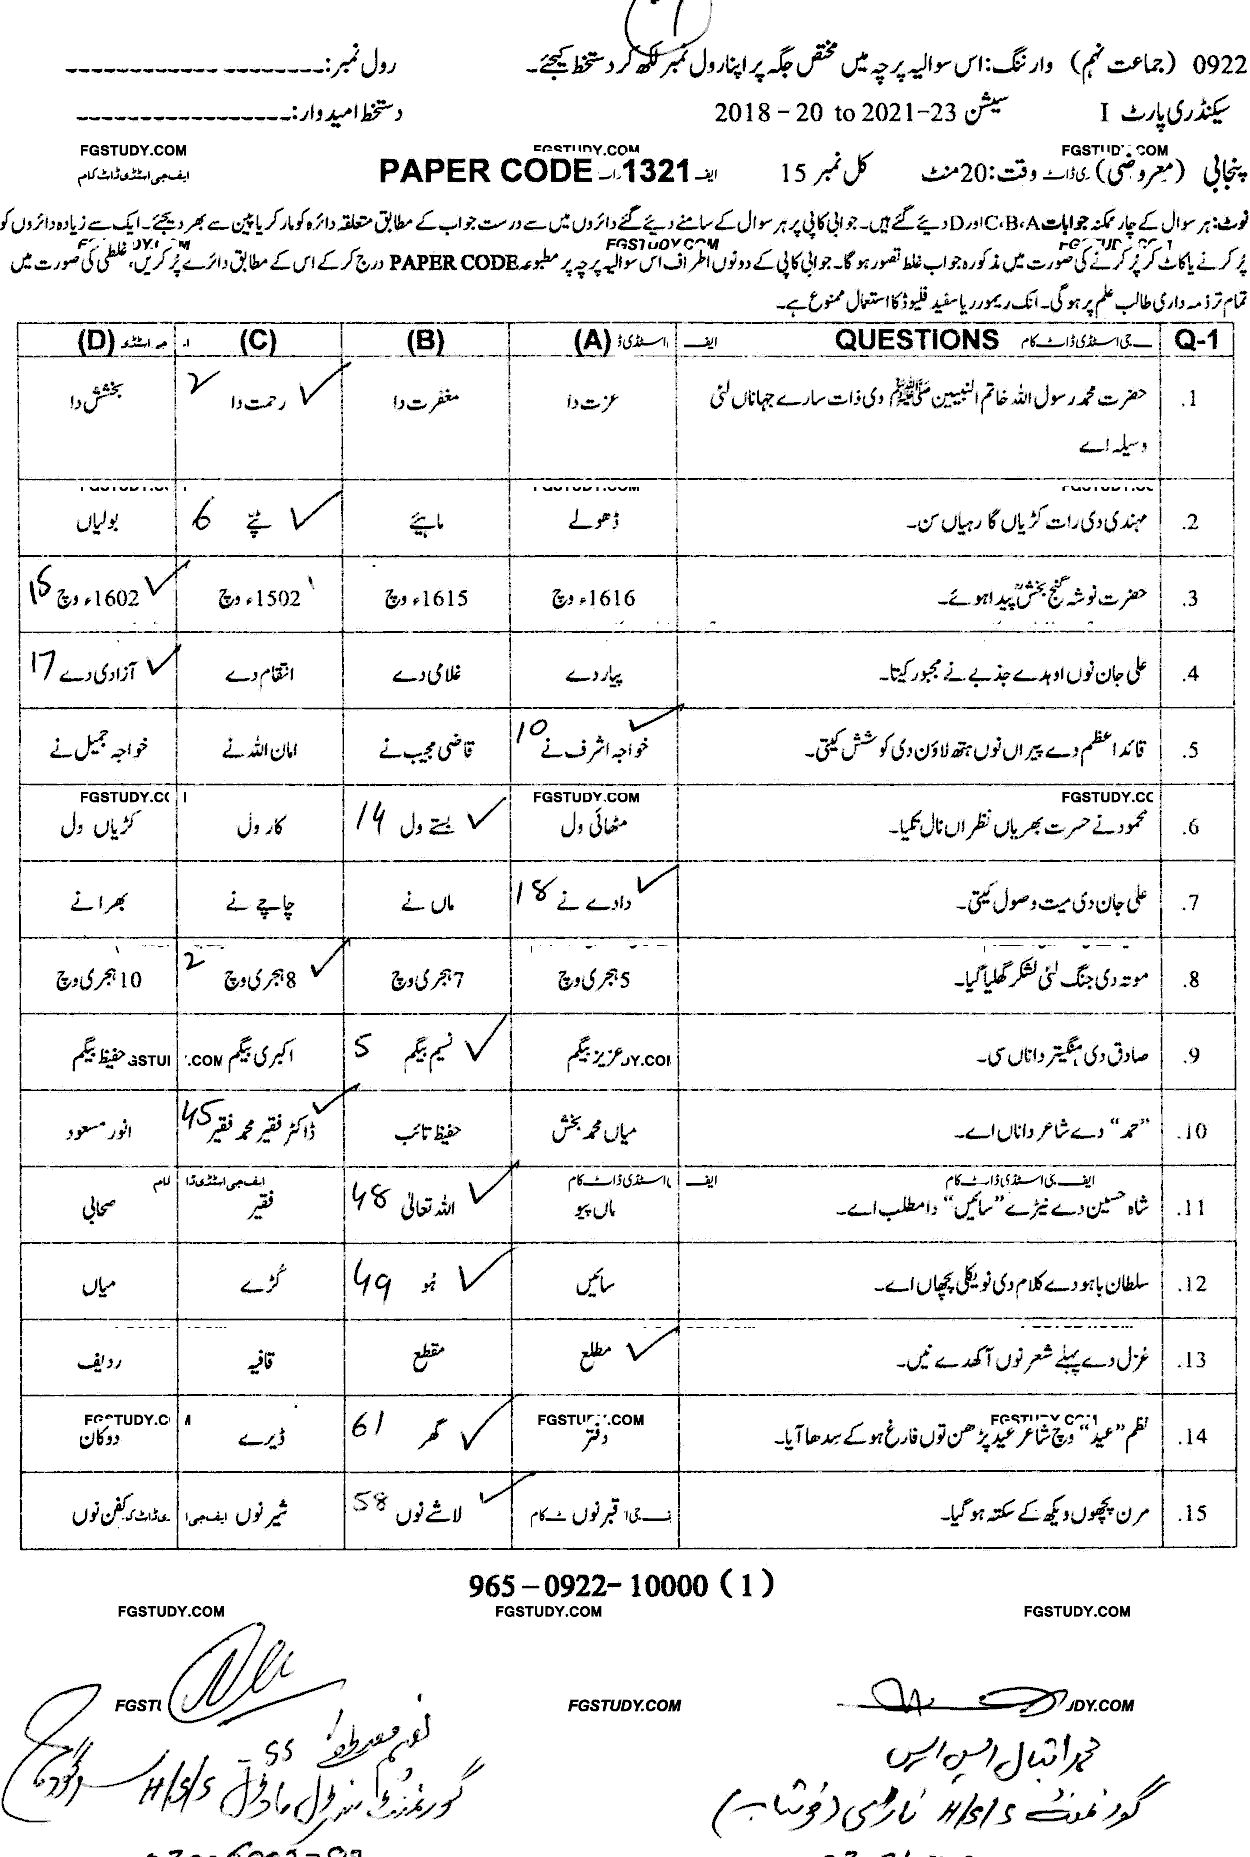 0922 (جماعت نہم) وارننگ: اس سوالیہ پرچہ میں مختص جگہ پر اپنا رول نمبر لکھ کر دستخط کیجئے۔ رول نمبر:
سیکنڈری پارٹ I سیشن 2018 – 20 to 2021–23 دستخط امیدوار:
FGSTUDY.COM
پنجابی (معروضی) وقت: 20 منٹ کل نمبر 15 PAPER CODE 1321 ایف جی اسٹڈی ڈاٹ کام
نوٹ: ہر سوال کے چار ممکنہ جوابات C، B، A اور D دیئے گئے ہیں۔ جوابی کاپی پر ہر سوال کے سامنے دیئے گئے دائروں میں سے درست جواب کے مطابق متعلقہ دائرہ کو مارکر یا پین سے بھر دیجئے۔ ایک سے زیادہ دائروں کو
پُر کرنے یا کاٹ کر پُر کرنے کی صورت میں مذکورہ جواب غلط تصور ہو گا۔ جوابی کاپی کے دونوں اطراف اس سوالیہ پرچہ پر مطبوعہ PAPER CODE درج کر کے اس کے مطابق دائرے پُر کریں، غلطی کی صورت میں
تمام تر ذمہ داری طالب علم پر ہو گی۔ انک ریمور یا سفید فلیوڈ کا استعمال ممنوع ہے۔
Q-1 QUESTIONS (A) (B) (C) (D)
1. حضرت محمد رسول اللہ خاتم النبیین ﷺ دی ذات سارے جہاناں لئی عزت دا مغفرت دا رحمت دا 2 بخشش دا
وسیلہ اے
2. مہندی دی رات کڑیاں گا رہیاں سن۔ ڈھولے ماہیے ٹپے 6 بولیاں
3. حضرت نوشہ گنج بخشؒ پیدا ہوئے۔ 1616ء وچ 1615ء وچ 1502ء وچ 1602ء وچ 15
4. علی جان نوں اوہدے جذبے نے مجبور کیتا۔ پیار دے غلامی دے انتقام دے آزادی دے 17
5. قائد اعظم دے پیراں نوں ہتھ لاؤن دی کوشش کیتی۔ خواجہ اشرف نے 10 قاضی مجیب نے امان اللہ نے خواجہ جمیل نے
FGSTUDY.COM
6. محمود نے حسرت بھریاں نظراں نال تکیا۔ مٹھائی ول بستے ول 14 کار ول کڑیاں ول
7. علی جان دی میت وصول کیتی۔ دادے نے 18 ماں نے چاچے نے بھرا نے
8. موتہ دی جنگ لئی لشکر گھلیا گیا۔ 5 ہجری وچ 7 ہجری وچ 8 ہجری وچ 2 10 ہجری وچ
9. صادق دی منگیتر دا ناں سی۔ عزیز بیگم نسیم بیگم 5 اکبری بیگم حفیظ بیگم
10. ”حمد“ دے شاعر دا ناں اے۔ میاں محمد بخش حفیظ تائب ڈاکٹر فقیر محمد فقیر 45 انور مسعود
11. شاہ حسین دے نیڑے ”سائیں“ دا مطلب اے۔ ماں پیو اللہ تعالیٰ 48 فقیر صحابی
12. سلطان باہو دے کلام دی نویکلی پچھاں اے۔ سائیں ہُو 49 کُڑے میاں
13. غزل دے پہلے شعر نوں آکھدے نیں۔ مطلع مقطع قافیہ ردیف
14. نظم ”عید“ وچ شاعر عید پڑھن توں فارغ ہو کے سدھا آیا۔ دفتر گھر 61 ڈیرے دوکان
15. مرن پچھوں ویکھ کے سکتہ ہو گیا۔ قبر نوں لاشے نوں 58 شیر نوں کفن نوں
965–0922–10000 (1)
FGSTUDY.COM FGSTUDY.COM FGSTUDY.COM
FGSTUDY.COM
محمد اقبال ایس ایس
گورنمنٹ H/S/S